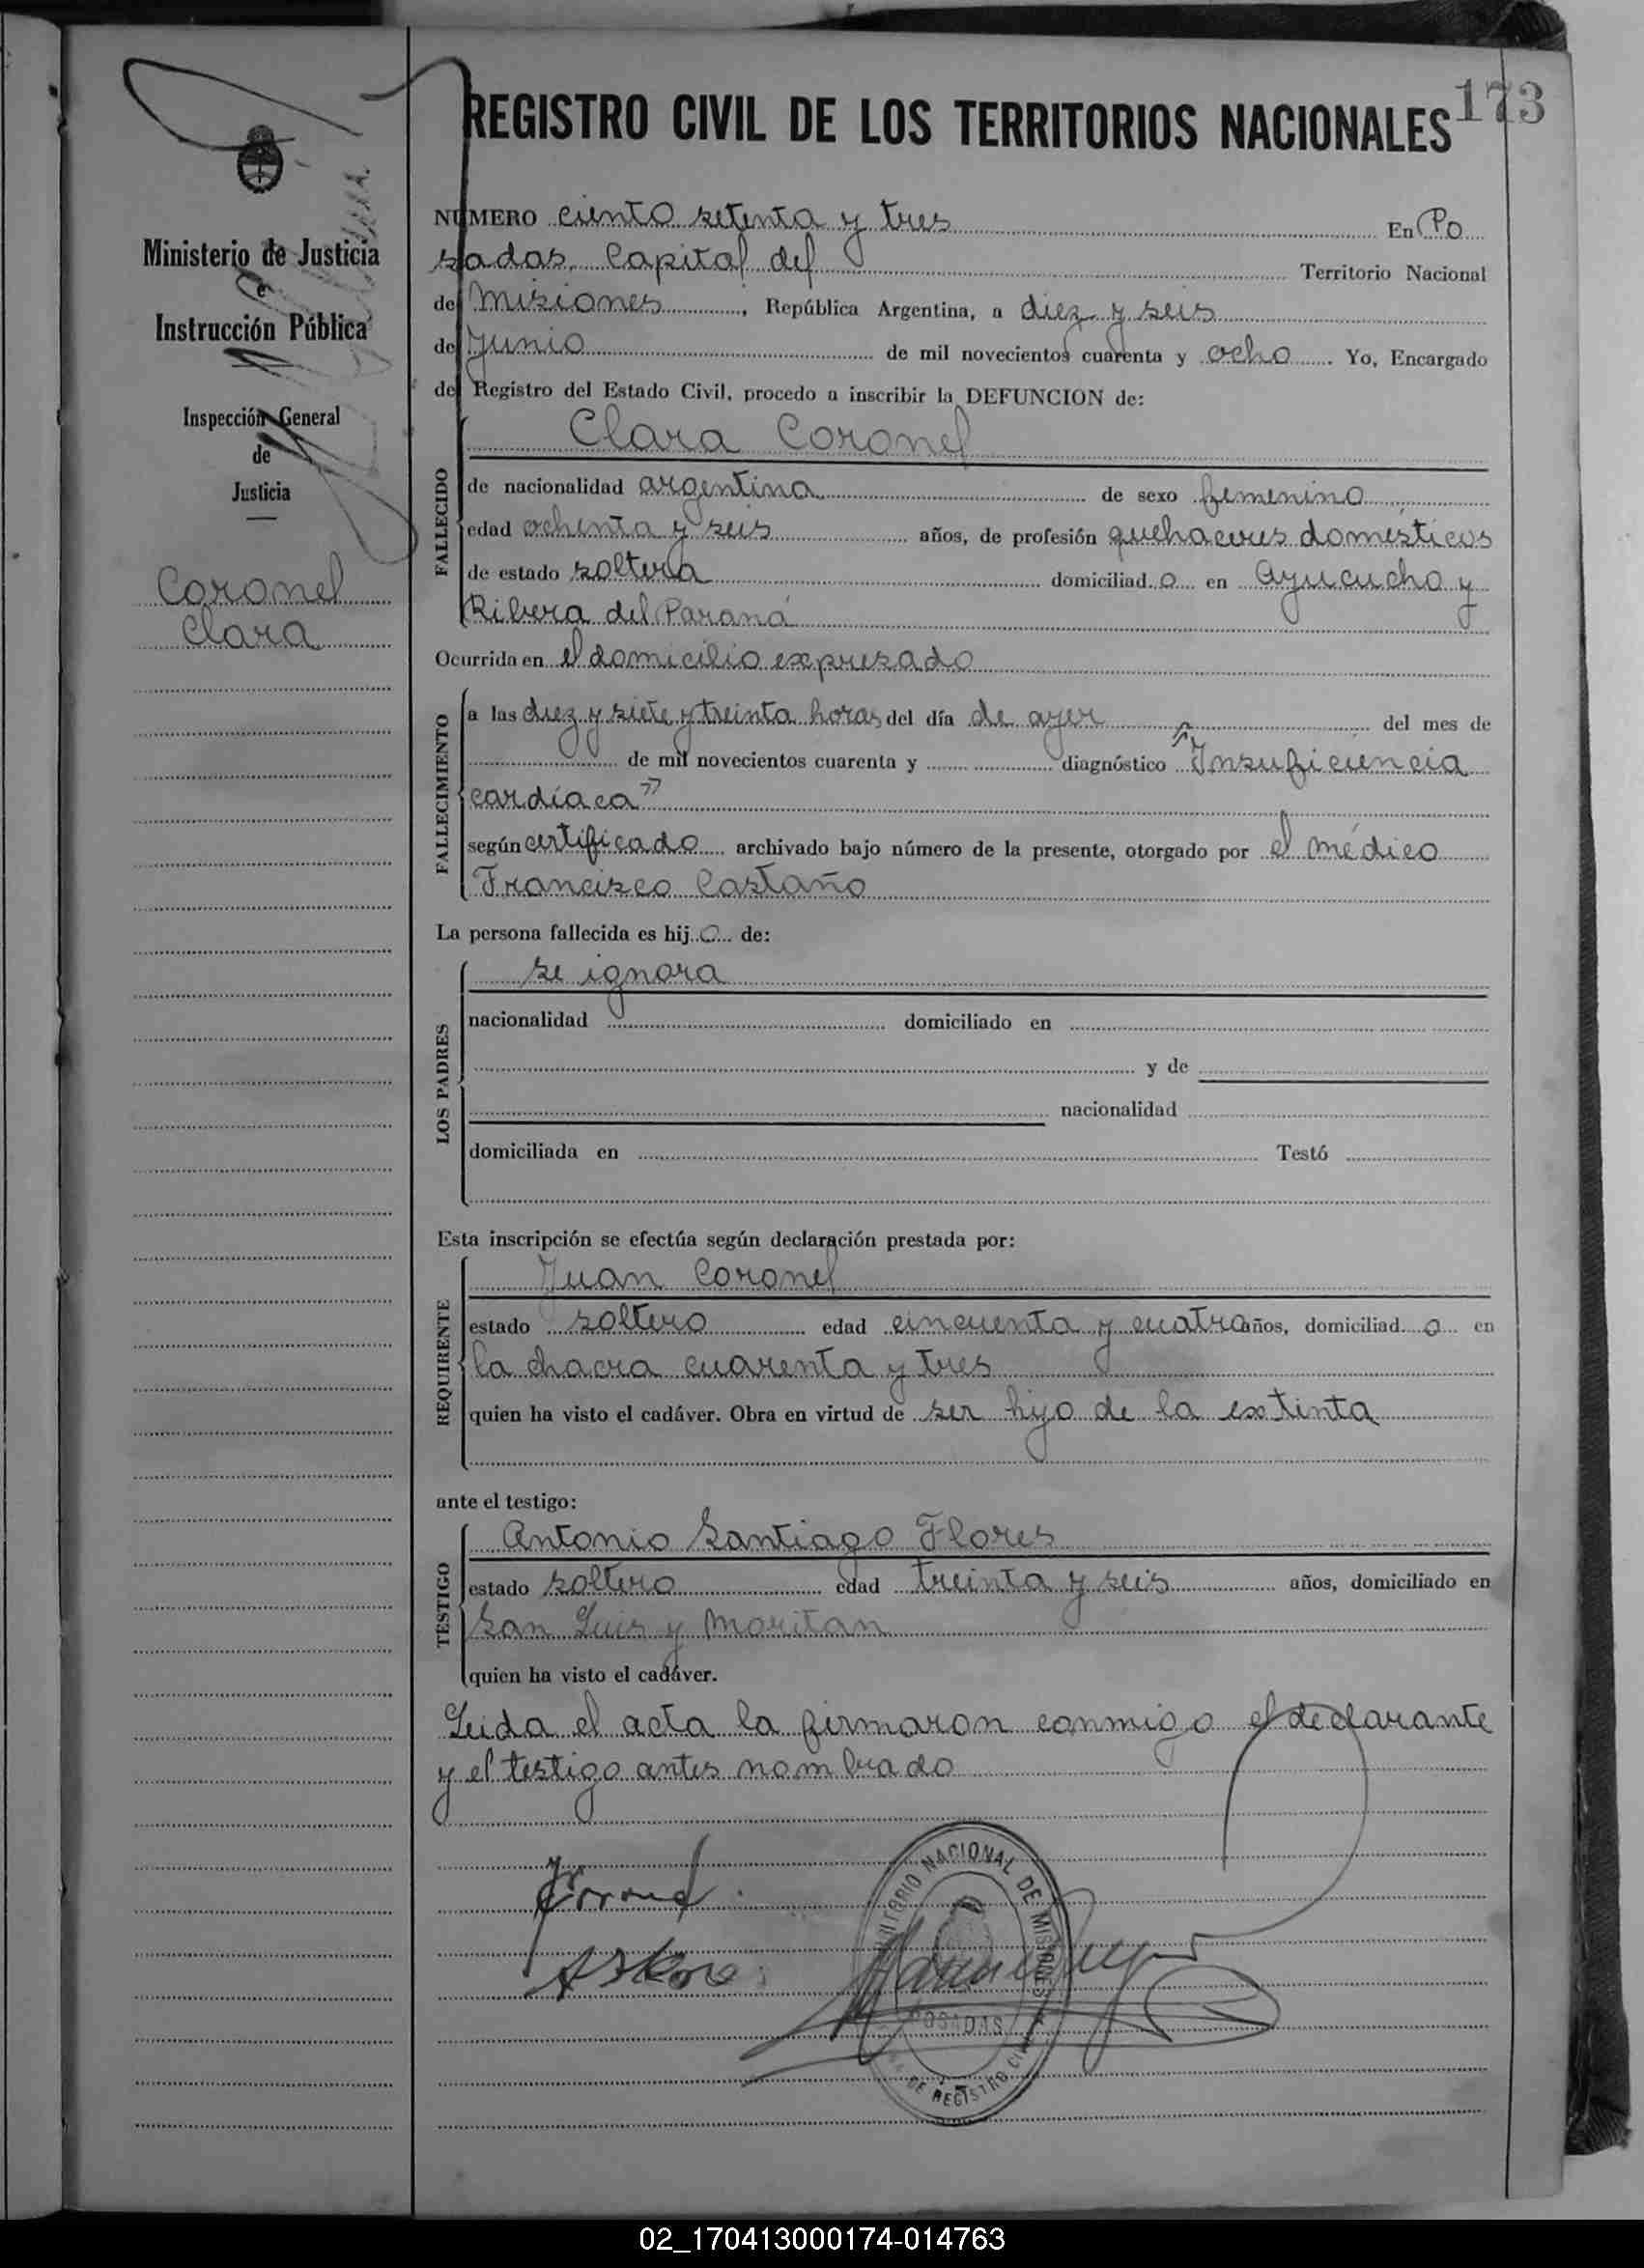 173
REGISTRO CIVIL DE LOS TERRITORIOS NACIONALES
Ministerio de Justicia
e
Instrucción Pública
Inspección General
de
Justicia
Coronel
Clara
NUMERO ciento setenta y tres En Po
sadas, Capital del Territorio Nacional
de Misiones, República Argentina, a diez y seis
de Junio de mil novecientos cuarenta y ocho. Yo, Encargado
del Registro del Estado Civil, procedo a inscribir la DEFUNCION de:
Clara Coronel
FALLECIDO
de nacionalidad argentina de sexo femenino
edad ochenta y seis años, de profesión quehaceres domésticos
de estado soltera domiciliad a en Ayucucho y
Ribera del Paraná
Ocurrida en el domicilio expresado
FALLECIMIENTO
a las diez y siete y treinta horas del día de ayer del mes de
de mil novecientos cuarenta y diagnóstico "Insuficiencia
cardíaca"
según certificado archivado bajo número de la presente, otorgado por el médico
Francisco Castaño
La persona fallecida es hij a de:
LOS PADRES
se ignora
nacionalidad domiciliado en
y de
nacionalidad
domiciliada en Testó
Esta inscripción se efectúa según declaración prestada por:
REQUIRENTE
Juan Coronel
estado soltero edad cincuenta y cuatro años, domiciliad o en
la chacra cuarenta y tres
quien ha visto el cadáver. Obra en virtud de ser hijo de la extinta
ante el testigo:
TESTIGO
Antonio Santiago Flores
estado soltero edad treinta y seis años, domiciliado en
San Luis y Moritan
quien ha visto el cadáver.
Leida el acta la firmaron conmigo el declarante
y el testigo antes nombrado
JCoronel
ASFlores
TERRITORIO NACIONAL DE MISIONES
POSADAS
DE REGISTRO CIVIL
02_170413000174-014763